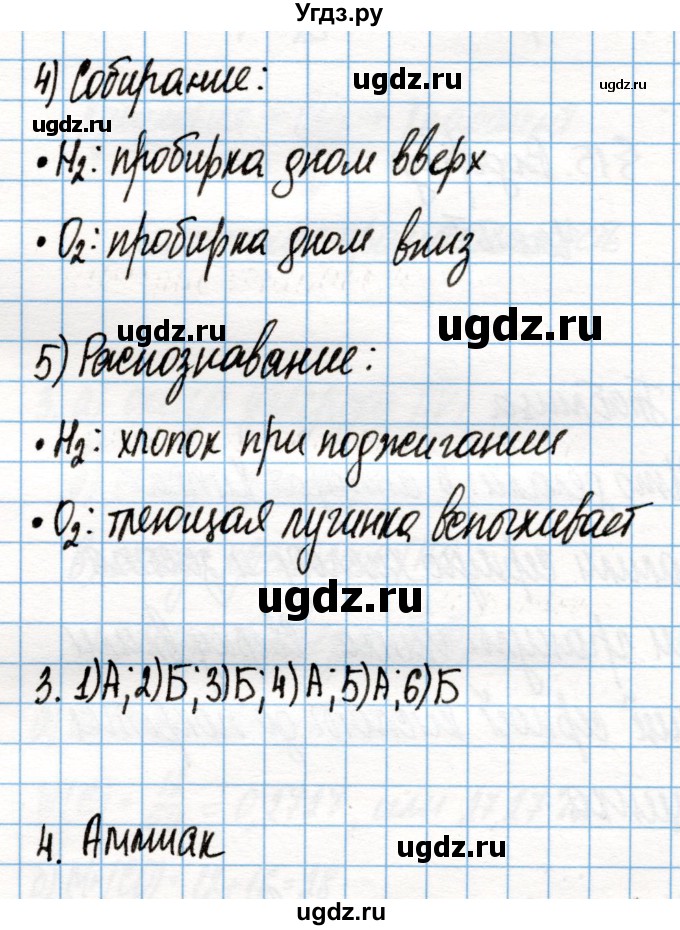 Угдз.ру
4) Собирание:
ugdz.ru
ugdz.ru
ugdz.ru
• H₂: пробирка дном вверх
• O₂: пробирка дном вниз
ugdz.ru
ugdz.ru
5) Распознавание:
• H₂: хлопок при поджигании
• O₂: тлеющая лучинка вспыхивает
ugdz.ru
3. 1)А; 2)Б; 3)Б; 4)А; 5)А; 6)Б
4. Аммиак
ugdz.ru
ugdz.ru